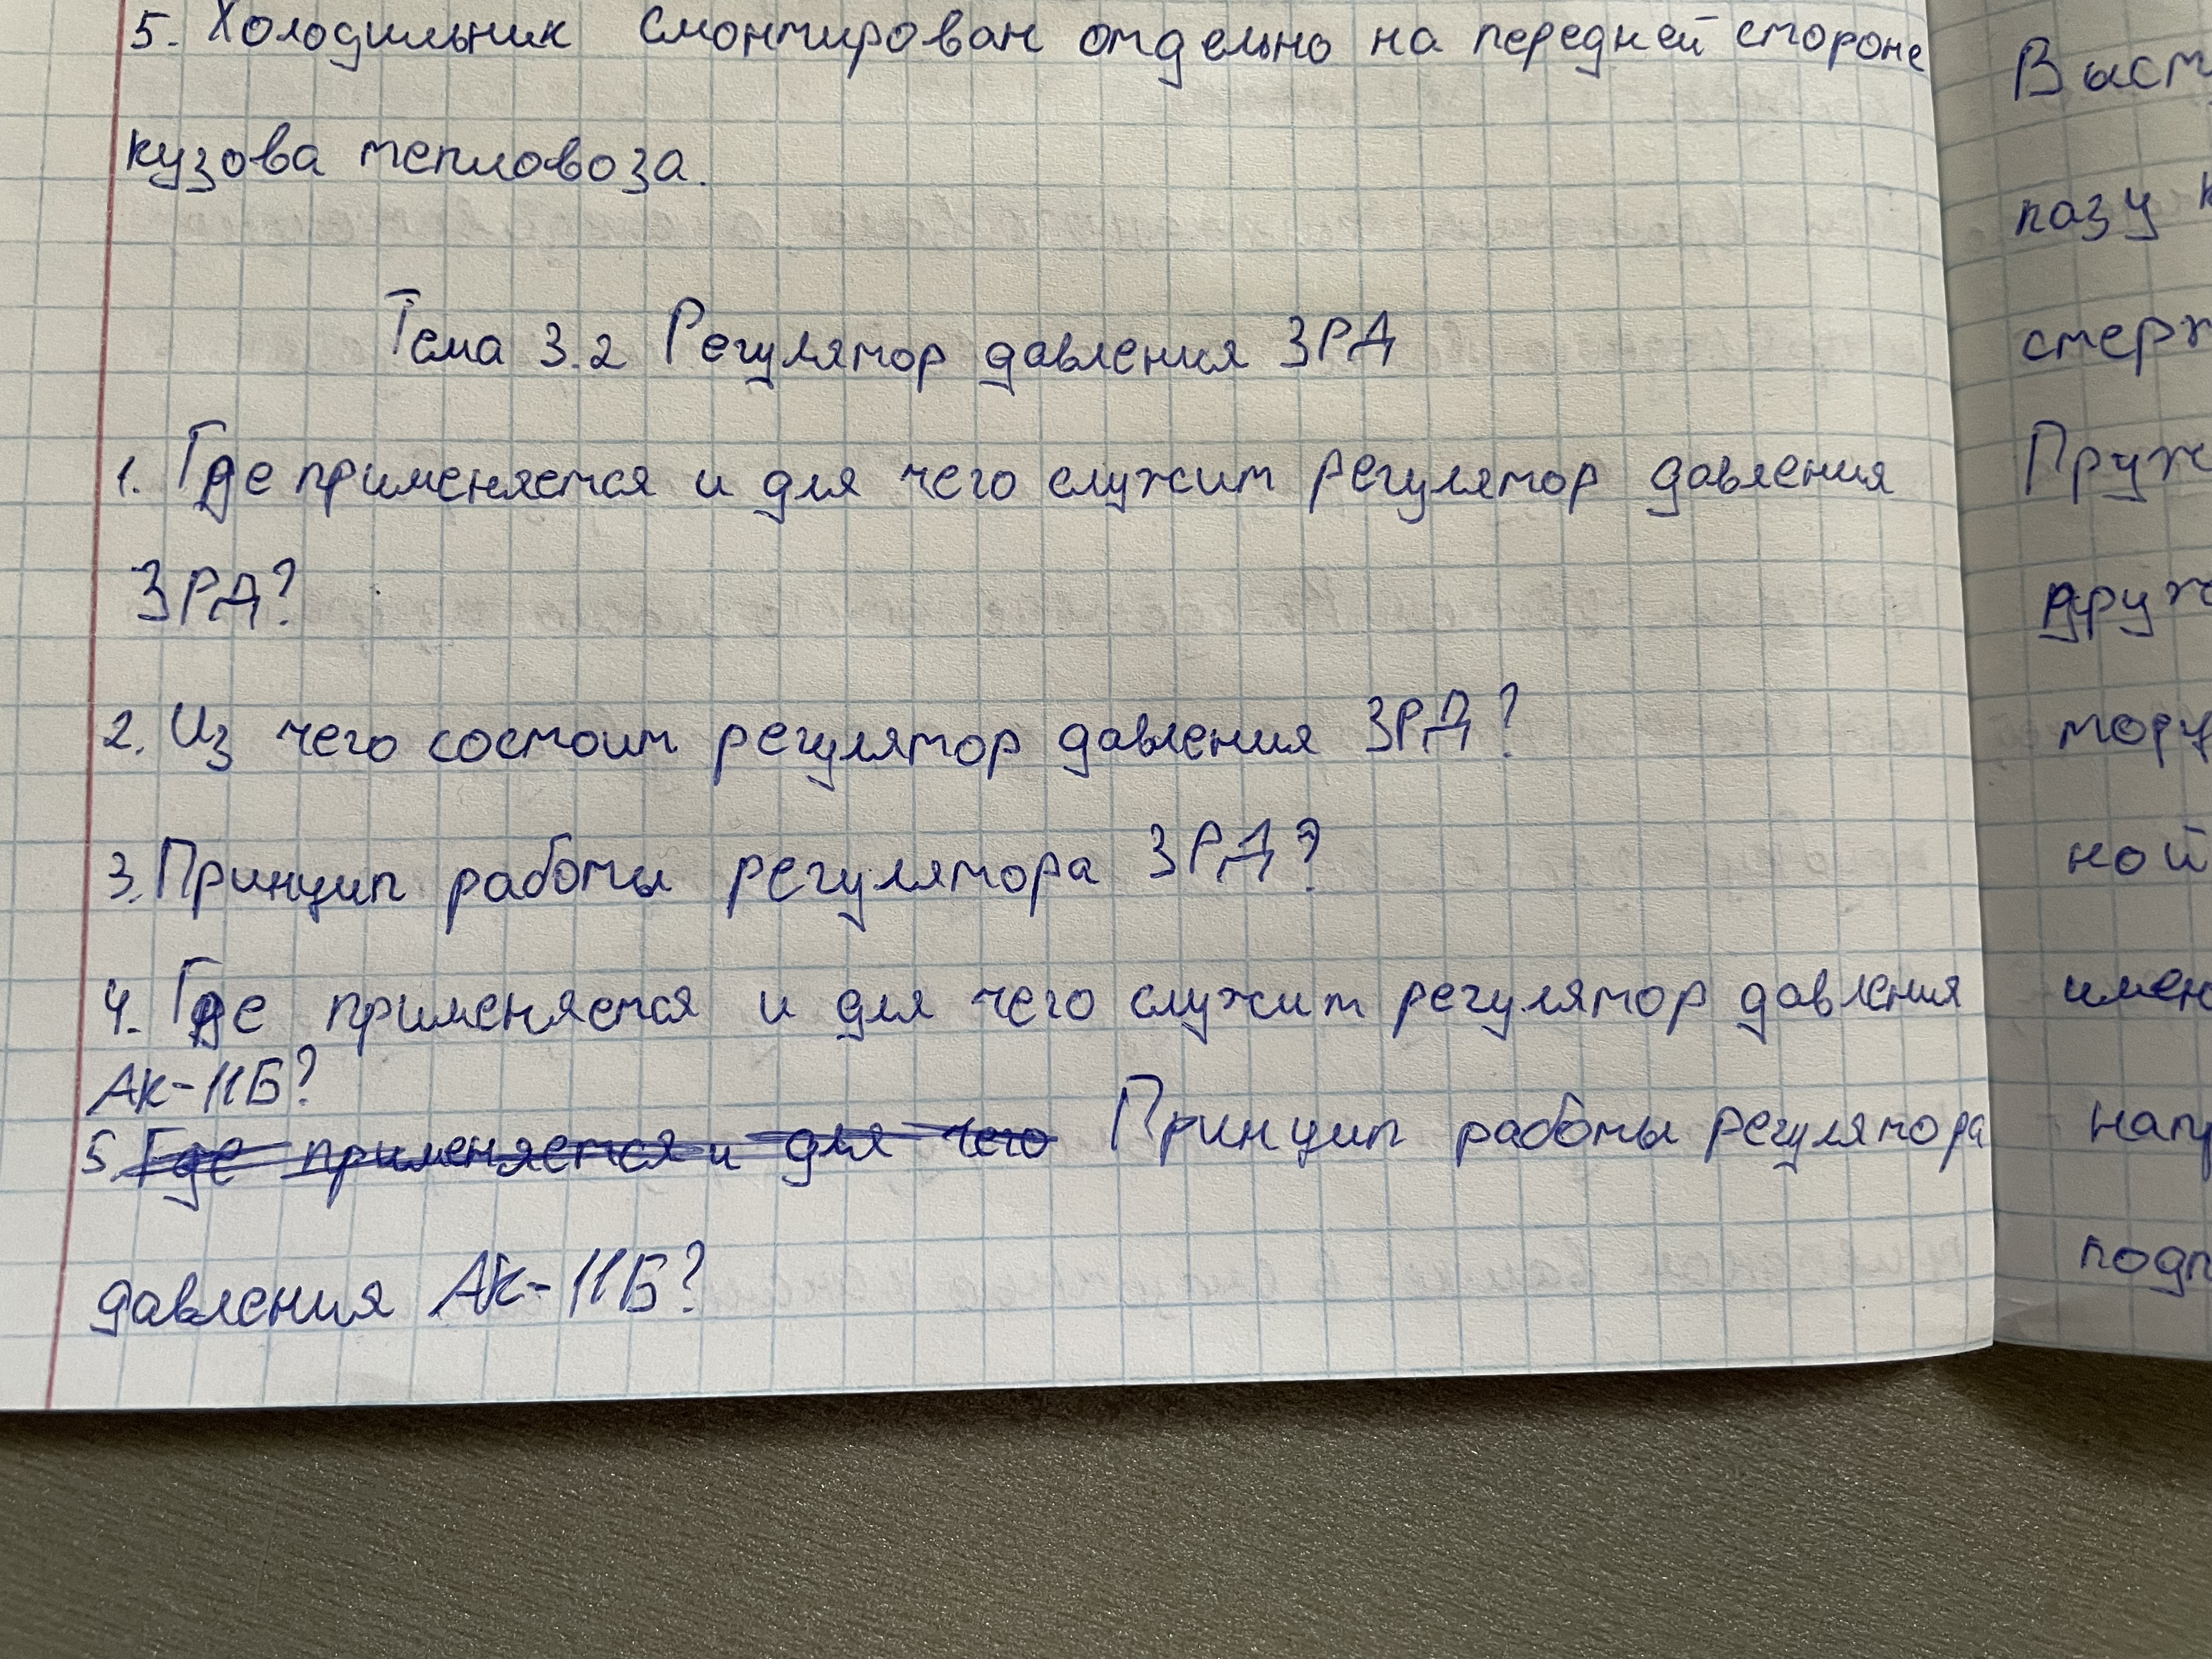 5. Холодильник смонтирован отдельно на передней стороне
кузова тепловоза.
Тема 3.2 Регулятор давления ЗРД
1. Где применяется и для чего служит регулятор давления
ЗРД?
2. Из чего состоит регулятор давления ЗРД?
3. Принцип работы регулятора ЗРД?
4. Где применяется и для чего служит регулятор давления
АК-11Б?
5. Где применяется и для чего Принцип работы регулятора
давления АК-11Б?
пазу
ной